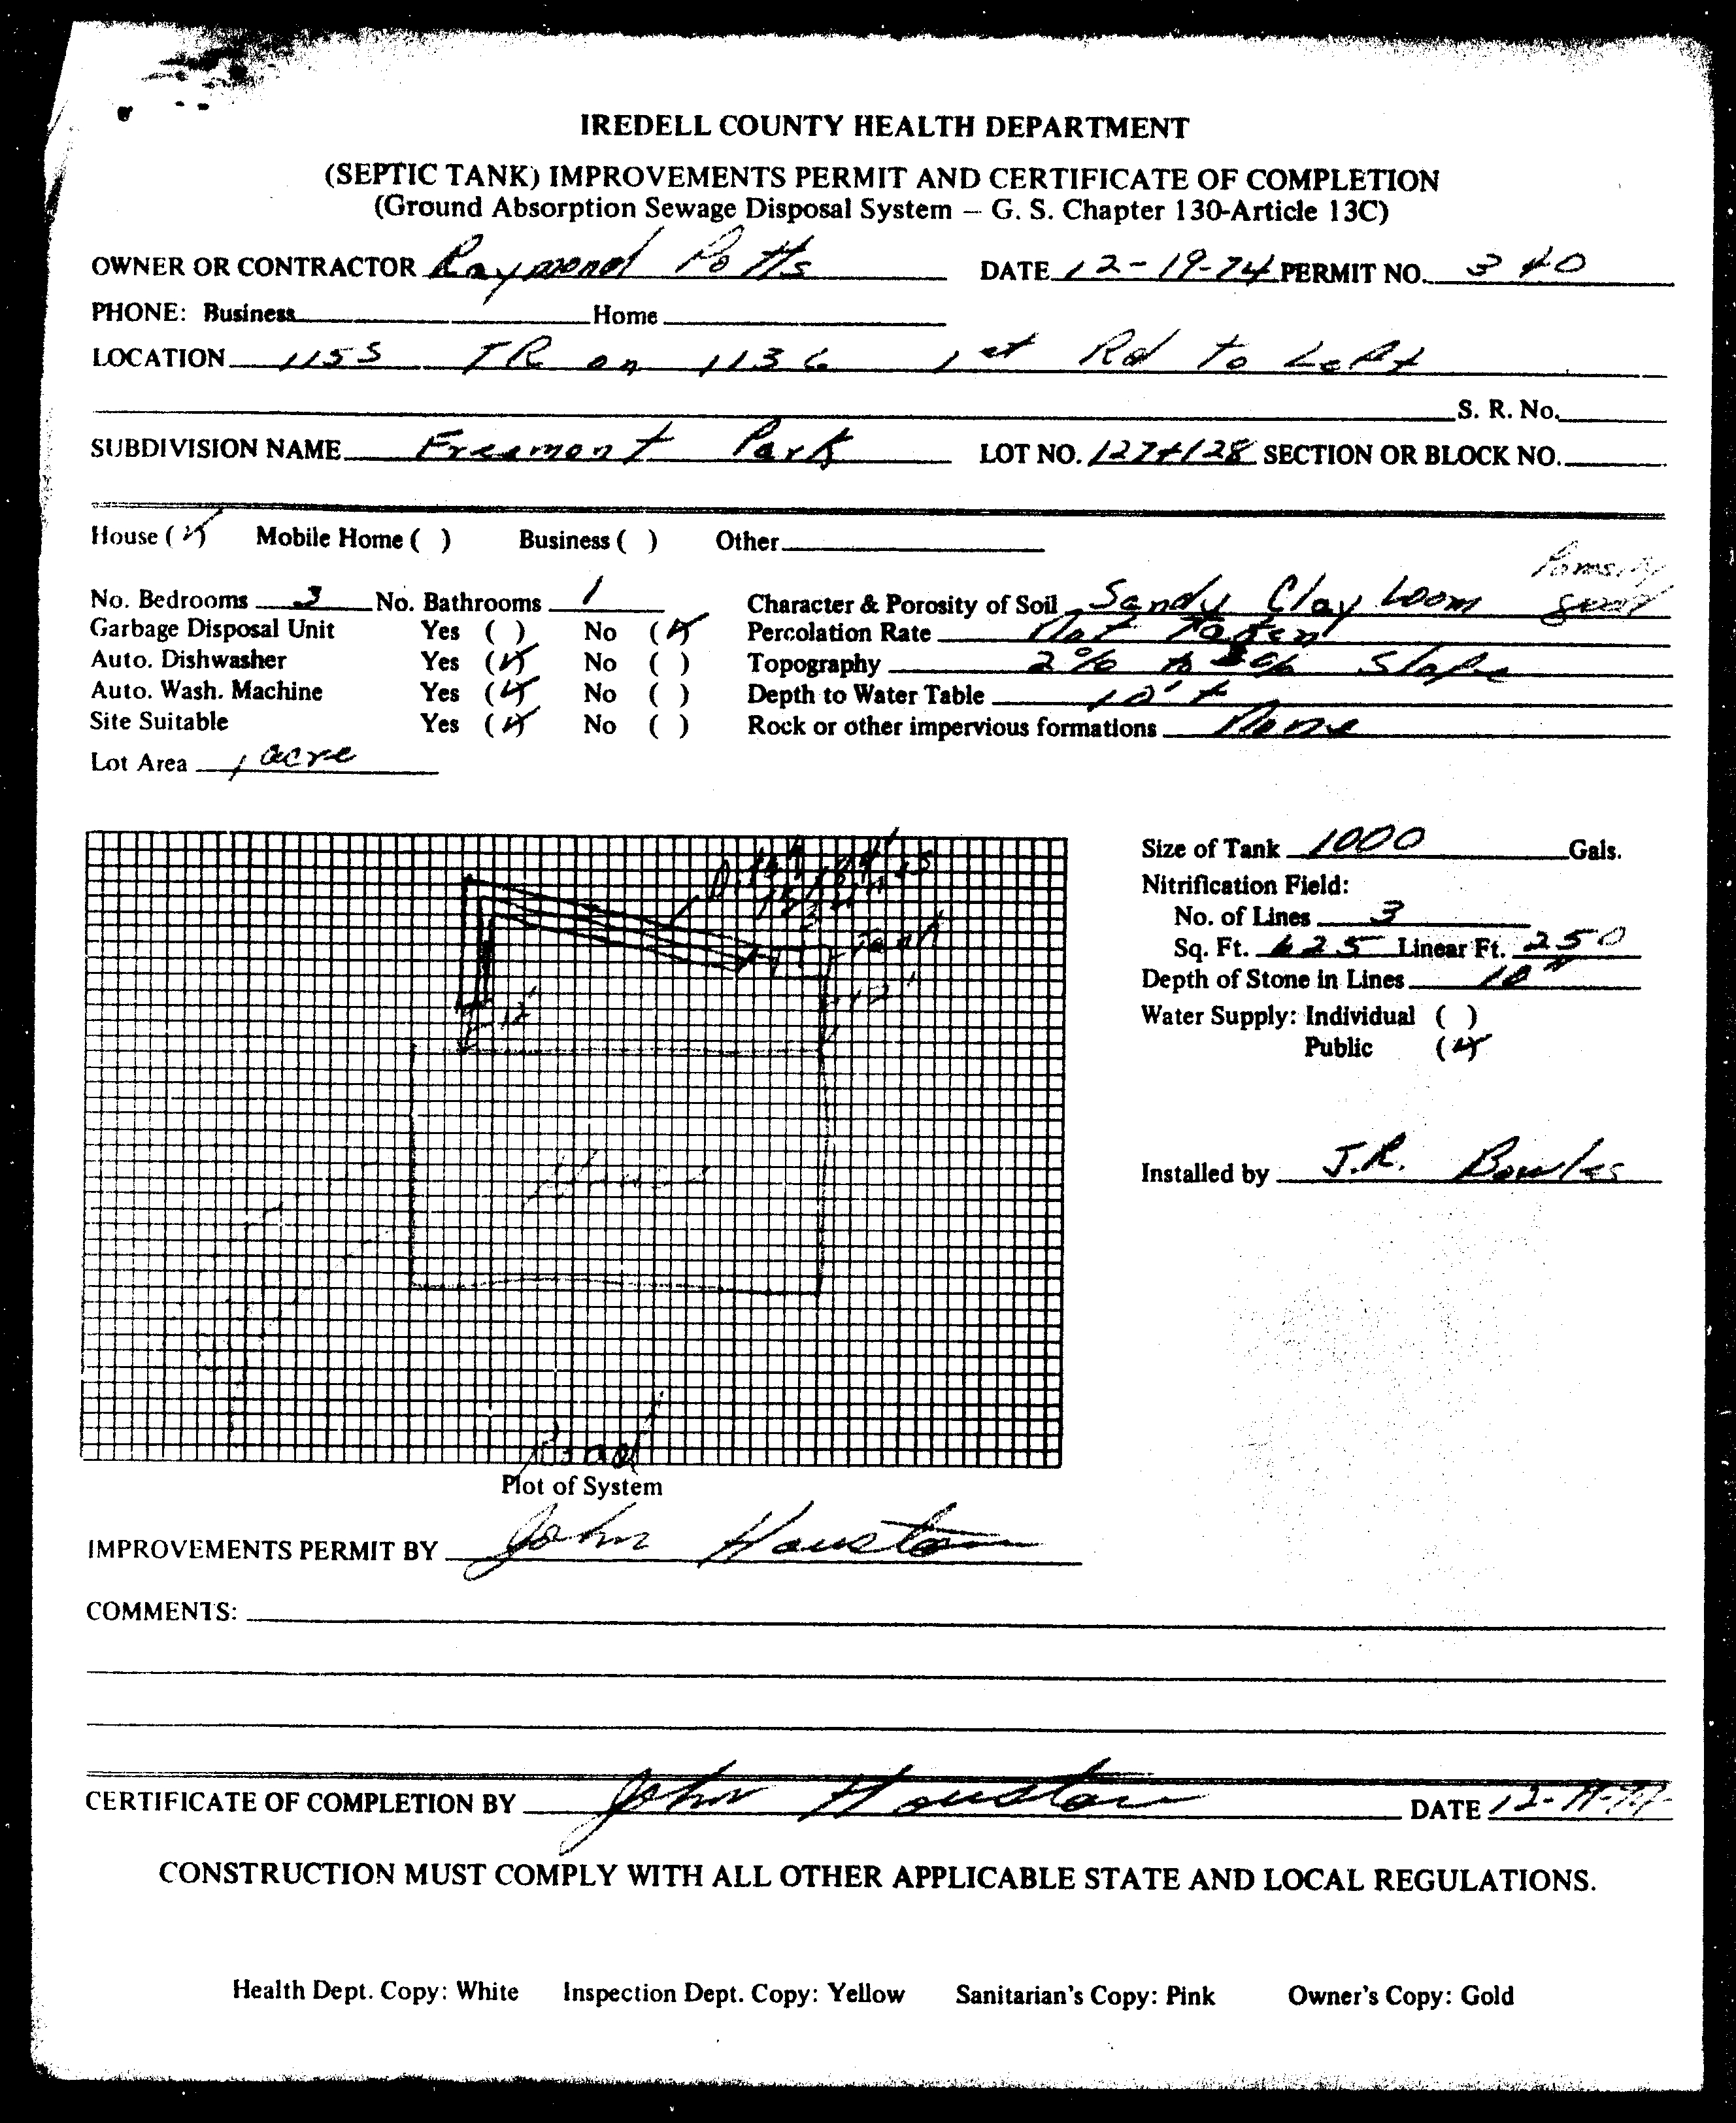 IREDELL COUNTY HEALTH DEPARTMENT
(SEPTIC TANK) IMPROVEMENTS PERMIT AND CERTIFICATE OF COMPLETION
(Ground Absorption Sewage Disposal System — G. S. Chapter 130-Article 13C)
OWNER OR CONTRACTOR Raymond Potts DATE 12-19-74 PERMIT NO. 340
PHONE: Business Home
LOCATION 1155 TR on 1136 1st Rd to Left
S. R. No.
SUBDIVISION NAME Freemont Park LOT NO. 127+128 SECTION OR BLOCK NO.
House (✓) Mobile Home ( ) Business ( ) Other
No. Bedrooms 3 No. Bathrooms 1 Character & Porosity of Soil Sandy Clay Loom good
Garbage Disposal Unit Yes ( ) No (✓) Percolation Rate Not Taken
Auto. Dishwasher Yes (✓) No ( ) Topography 2% to % Slope
Auto. Wash. Machine Yes (✓) No ( ) Depth to Water Table 10'+
Site Suitable Yes (✓) No ( ) Rock or other impervious formations None
Lot Area 1 acre
Size of Tank 1000 Gals.
Nitrification Field:
No. of Lines 3
Sq. Ft. 625 Linear Ft. 250
Depth of Stone in Lines 10"
Water Supply: Individual ( )
Public (✓)
Installed by J.R. Bowles
Tank
12'
12'
House
Road
Plot of System
IMPROVEMENTS PERMIT BY John Houston
COMMENTS:
CERTIFICATE OF COMPLETION BY John Houston DATE 12-19-74
CONSTRUCTION MUST COMPLY WITH ALL OTHER APPLICABLE STATE AND LOCAL REGULATIONS.
Health Dept. Copy: White Inspection Dept. Copy: Yellow Sanitarian's Copy: Pink Owner's Copy: Gold